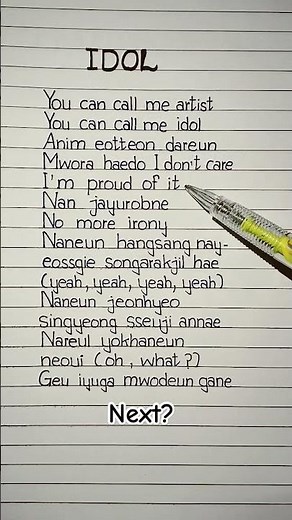 IDOL
You can call me artist
You can call me idol
Anim eotteon dareun
Mwora haedo I don't care
I'm proud of it
Nan jayurobne
No more irony
Naneun hangsang nay-
eossgie songarakjil hae
(yeah, yeah, yeah, yeah)
Naneun jeonhyeo
singyeong sseuji annae
Nareul yokhaneun
neoui (oh, what?)
Geu iyuga mwodeun gane
Next?